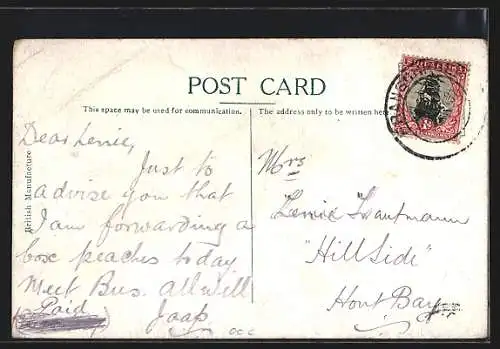 POST CARD
This space may be used for communication.
The address only to be written here
British Manufacture
Dear Lenie,
Just to
advise you that
I am forwarding a
box peaches today
Meet Bus. all well
Paid
Jaap
Mrs
Lenie Trautmann
"Hillside"
Hout Bay